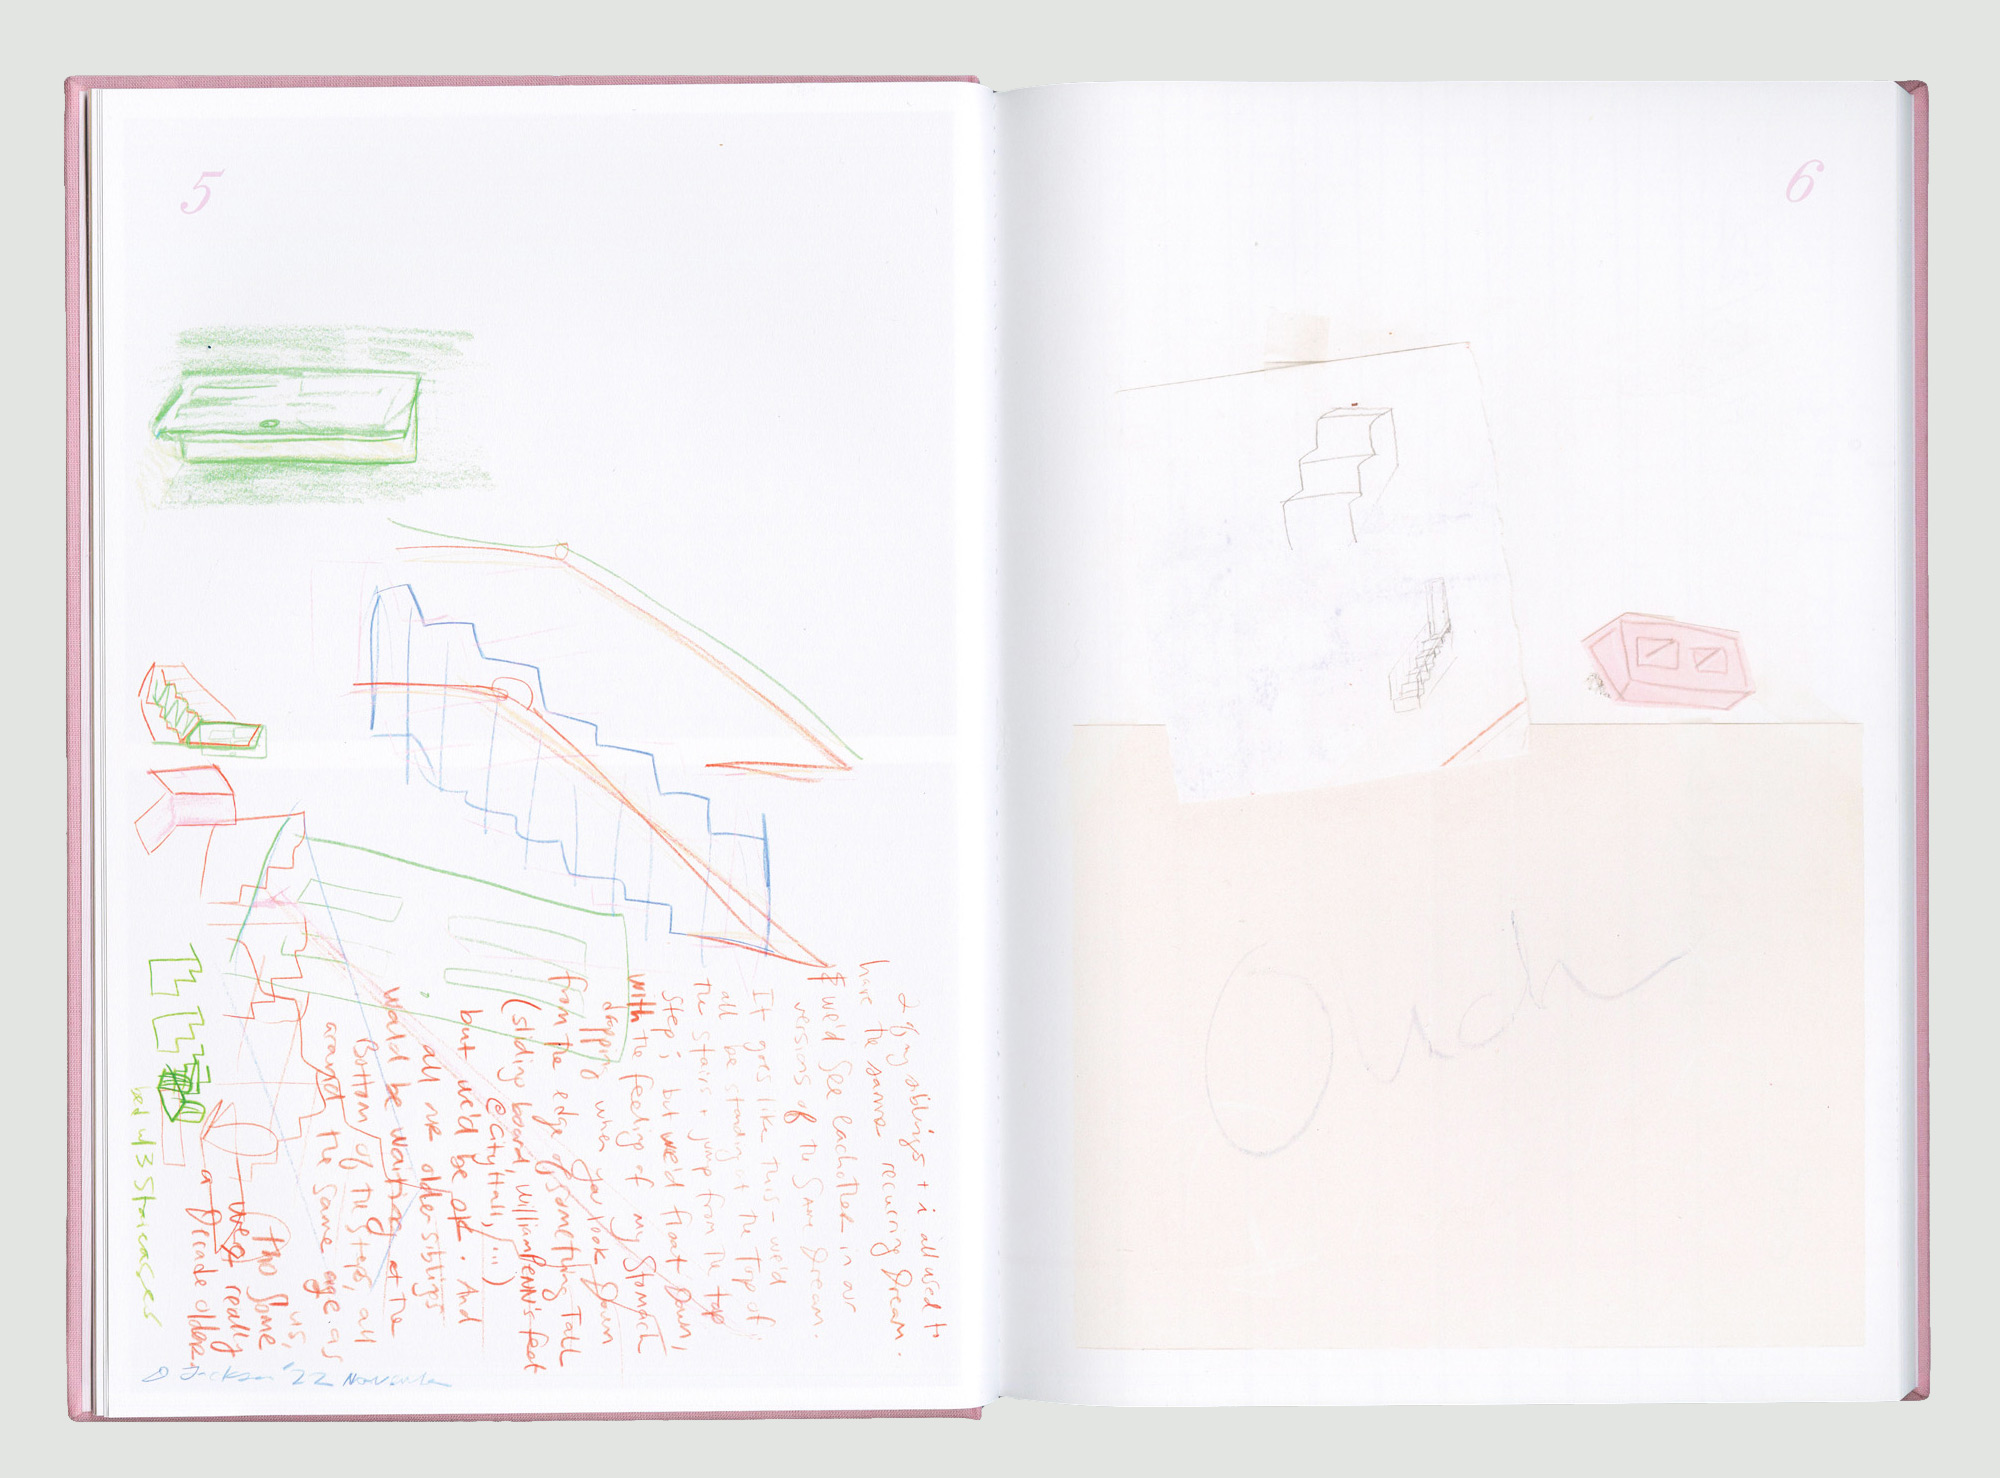 5
2 of my siblings + i all used to
have the same recurring dream.
& we'd see eachother in our
versions of the same dream.
It goes like this – we'd
all be standing at the top of
the stairs + jump from the top
step; but we'd float down,
with the feeling of my stomach
dropping when you look down
from the edge of something tall
(sliding board, William Penn's feet
@ City Hall, ...)
but we'd be ok. And
all our older siblings
would be waiting at the
Bottom of the steps, all
around the same age as
us,
tho some
were really
a decade older.
bed w/ 3 staircases
D Jackson '22 November
6
Ouch